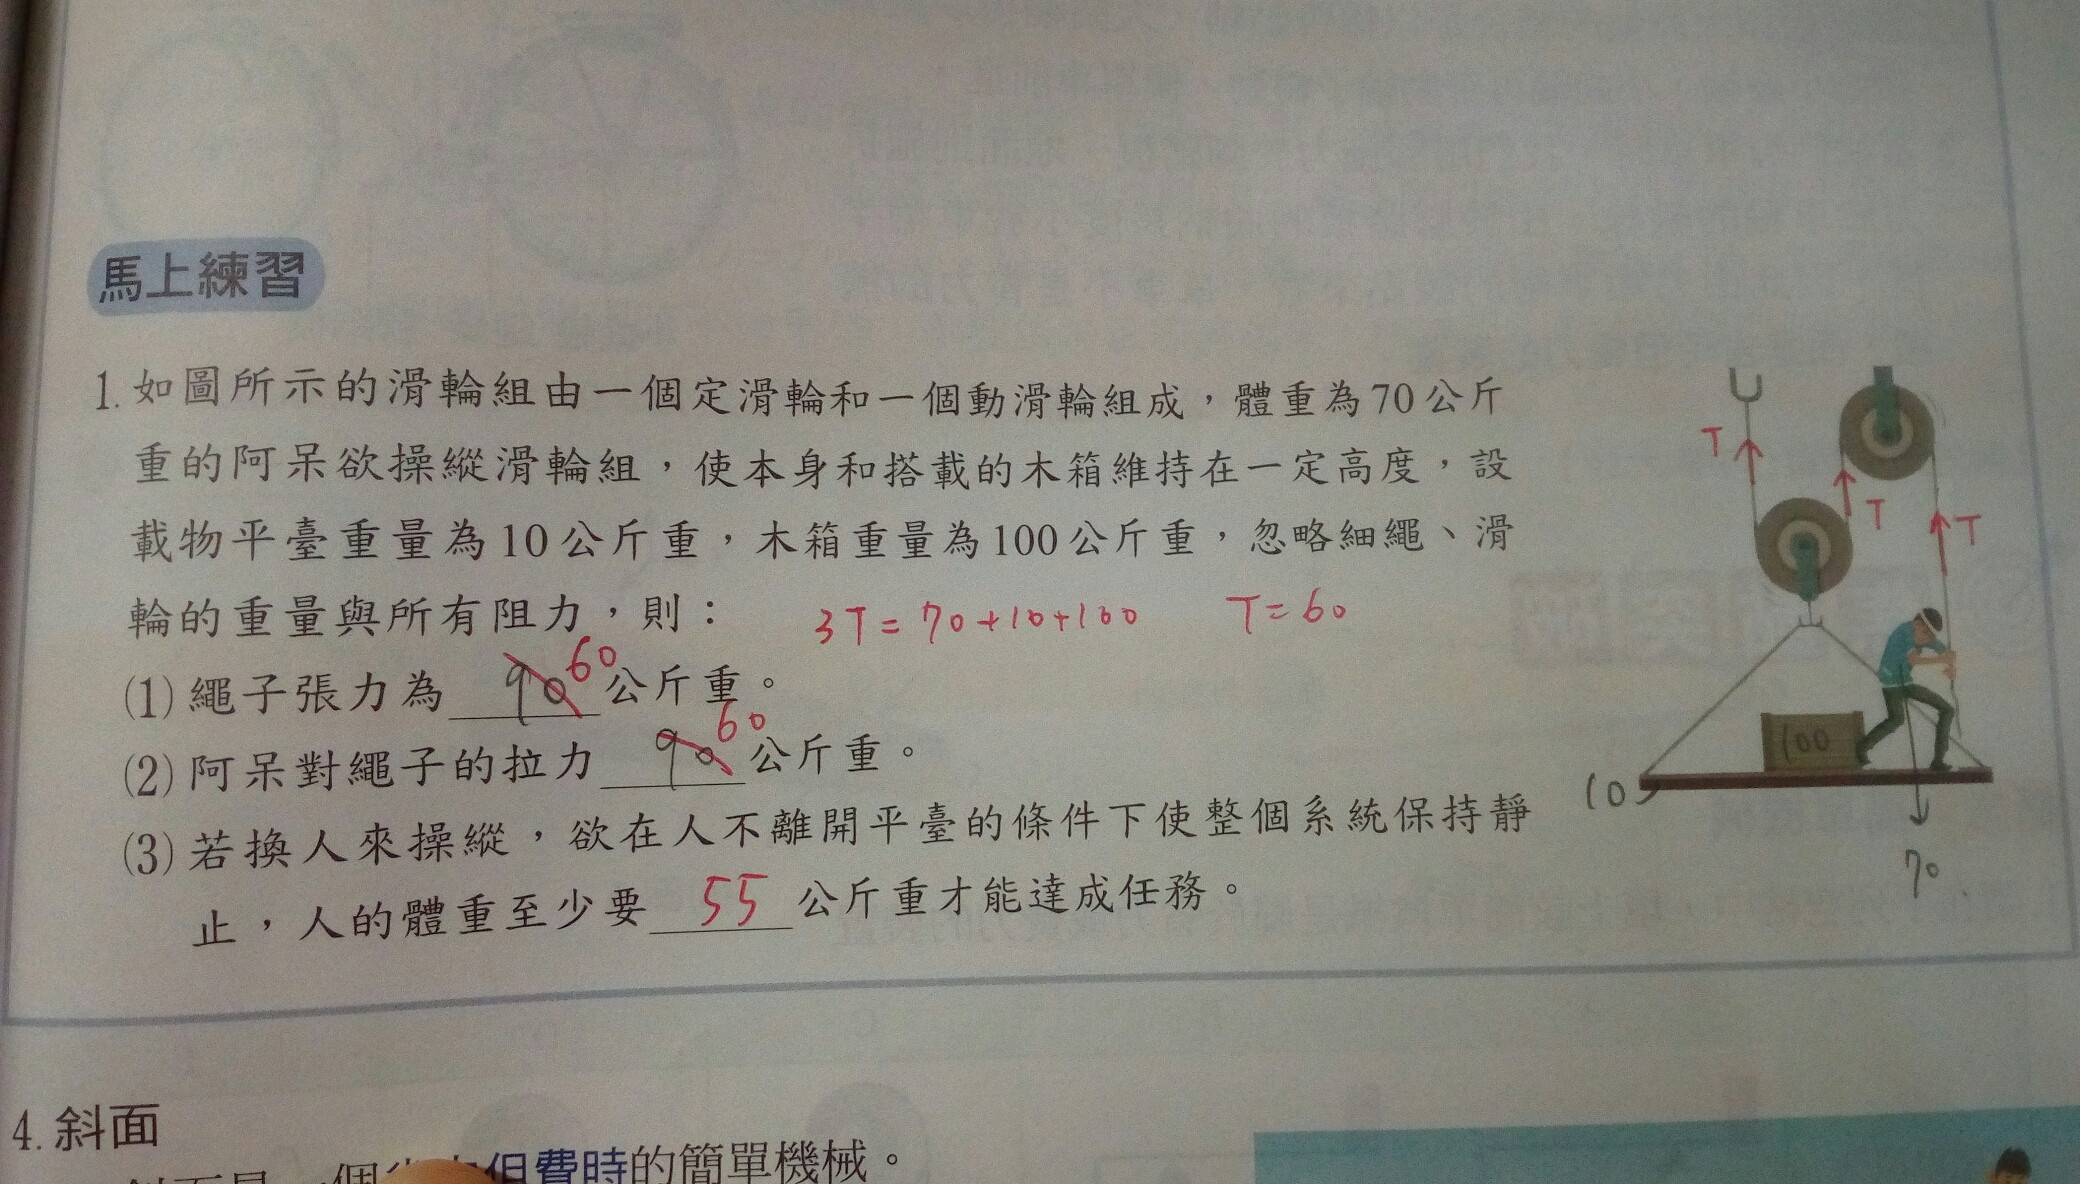 馬上練習
1. 如圖所示的滑輪組由一個定滑輪和一個動滑輪組成，體重為70公斤
重的阿呆欲操縱滑輪組，使本身和搭載的木箱維持在一定高度，設
載物平臺重量為10公斤重，木箱重量為100公斤重，忽略細繩、滑
輪的重量與所有阻力，則：
3T=70+10+100 T=60
(1) 繩子張力為 90 60 公斤重。
(2) 阿呆對繩子的拉力 90 60 公斤重。
(3) 若換人來操縱，欲在人不離開平臺的條件下使整個系統保持靜
止，人的體重至少要 55 公斤重才能達成任務。
T
T
T
100
10
70
4. 斜面
但費時的簡單機械。